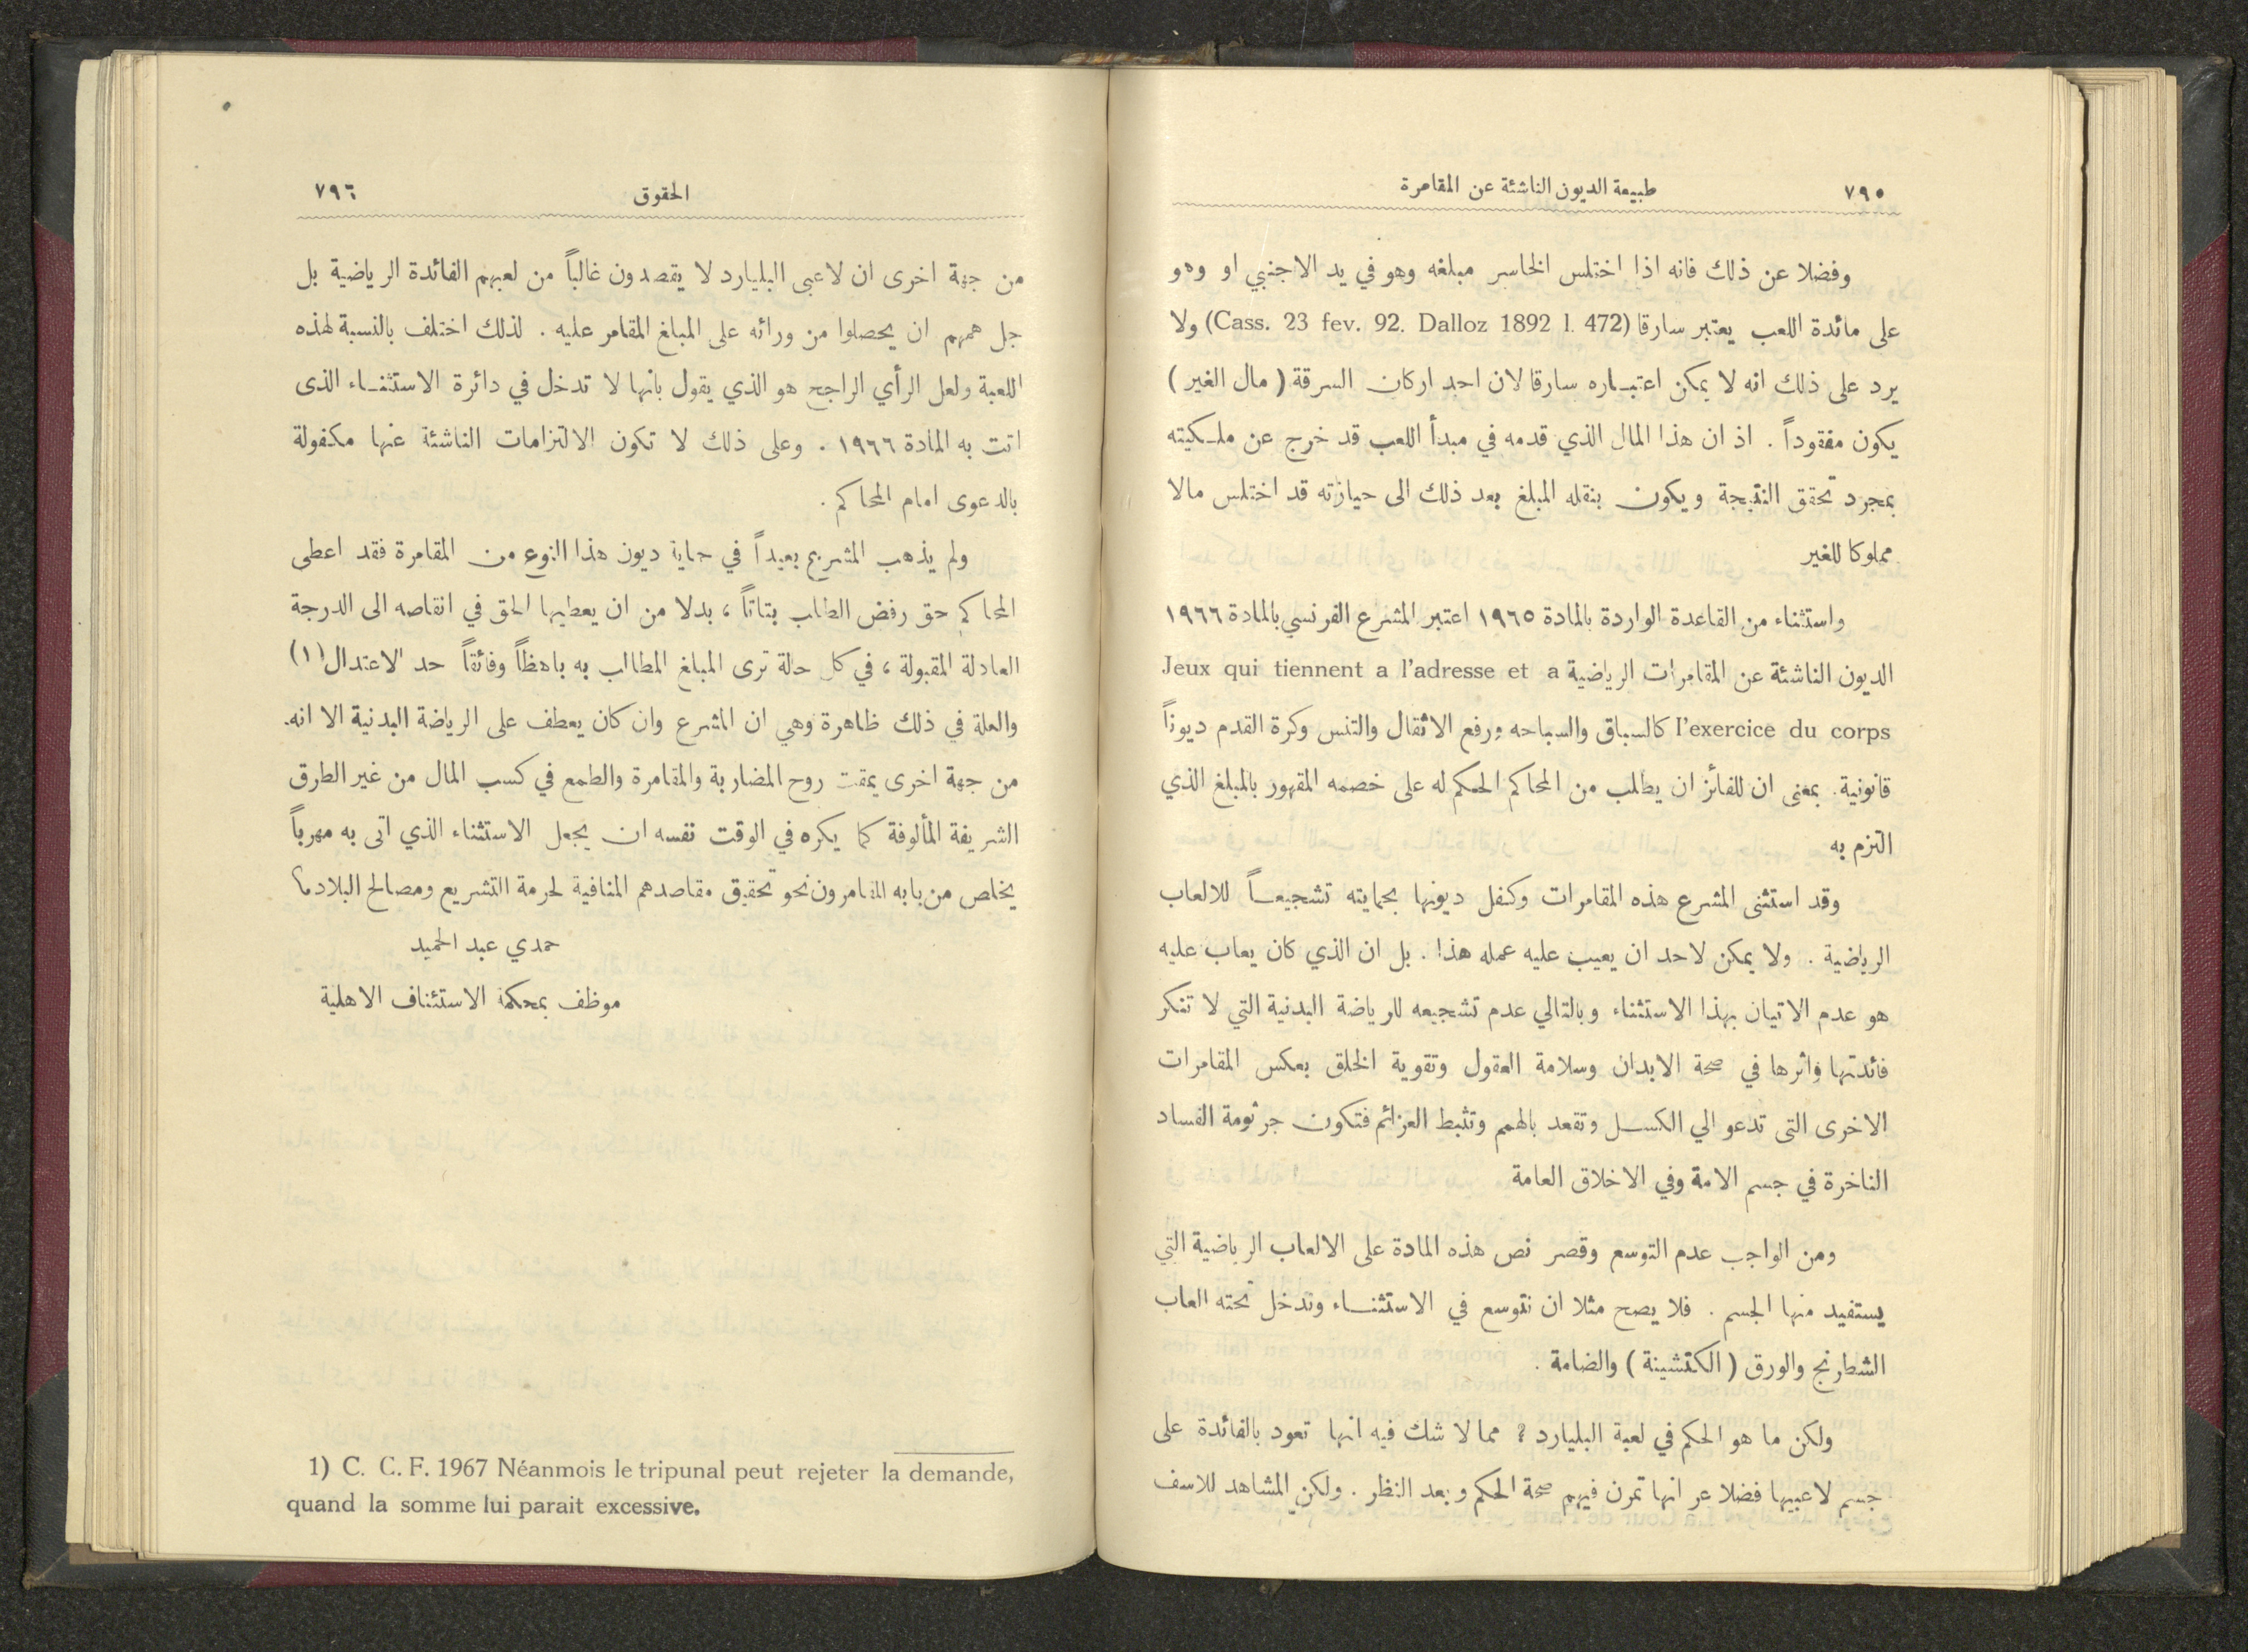 ٧٩٥ طبيعة الديون الناشئة عن المقامرة
وفضلا عن ذلك فانه اذا اختلس الخاسر مبلغه وهو في يد الاجنبي او وهو
على مائدة اللعب يعتبر سارقا (Cass. 23 fev. 92. Dalloz 1892 l. 472) ولا
يرد على ذلك انه لا يمكن اعتبـاره سارقا لان احد اركان السرقة ( مال الغير )
يكون مفقوداً . اذ ان هذا المال الذي قدمه في مبدأ اللعب قد خرج عن ملـكيته
بمجرد تحقق النتيجة ويكون بنقله المبلغ بعد ذلك الى حيازته قد اختلس مالا
مملوكا للغير
واستثناء من القاعدة الواردة بالمادة ١٩٦٥ اعتبر المشرع الفرنسي بالمادة ١٩٦٦
الديون الناشئة عن المقامرات الرياضية Jeux qui tiennent a l'adresse et a
l'exercice du corps كالسباق والسباحه ورفع الاثقال والتنس وكرة القدم ديوناً
قانونية . بمعنى ان للفائز ان يطلب من المحاكم الحكم له على خصمه المقهور بالمبلغ الذي
التزم به
وقد استثنى المشرع هذه المقامرات وكفل ديونها بحمايته تشجيعـاً للالعاب
الرياضية . ولا يمكن لاحد ان يعيب عليه عمله هذا . بل ان الذي كان يعاب عليه
هو عدم الاتيان بهذا الاستثناء وبالتالي عدم تشجيعه للرياضة البدنية التي لا تنكر
فائدتها واثرها في صحة الابدان وسلامة العقول وتقوية الخلق بعكس المقامرات
الاخرى التى تدعو الي الكسـل وتقعد بالهمم وتثبط العزائم فتكون جرثومة الفساد
الناخرة في جسم الامة وفي الاخلاق العامة
ومن الواجب عدم التوسع وقصر نص هذه المادة على الالعاب الرياضية التي
يستفيد منها الجسم . فلا يصح مثلا ان نتوسع في الاستثنـاء وندخل تحته العاب
الشطرنج والورق ( الكتشينة ) والضامة .
ولكن ما هو الحكم في لعبة البليارد ؟ مما لا شك فيه انها تعود بالفائدة على
جسم لاعبيها فضلا عن انها تمرن فيهم صحة الحكم وبعد النظر . ولكن المشاهد للاسف
الحقوق ٧٩٦
من جهة اخرى ان لاعبى البليارد لا يقصدون غالباً من لعبهم الفائدة الرياضية بل
جل همهم ان يحصلوا من ورائه على المبلغ المقامر عليه . لذلك اختلف بالنسبة لهذه
اللعبة ولعل الرأي الراجح هو الذي يقول بانها لا تدخل في دائرة الاستثنـاء الذى
اتت به المادة ١٩٦٦ . وعلى ذلك لا تكون الالتزامات الناشئة عنها مكفولة
بالدعوى امام المحاكم .
ولم يذهب المشرع بعيداً في حماية ديون هذا النوع من المقامرة فقد اعطى
المحاكم حق رفض الطلب بتاتاً ، بدلا من ان يعطيها الحق في انقاصه الى الدرجة
العادلة المقبولة ، في كل حالة ترى المبلغ المطالب به باهظاً وفائقاً حد الاعتدال (١)
والعلة في ذلك ظاهرة وهي ان المشرع وان كان يعطف على الرياضة البدنية الا انه
من جهة اخرى يمقت روح المضاربة والمقامرة والطمع في كسب المال من غير الطرق
الشريفة المألوفة كما يكره في الوقت نفسه ان يجعل الاستثناء الذي اتى به مهرباً
يخلص من بابه المقامرون نحو تحقيق مقاصدهم المنافية لحرمة التشريع ومصالح البلاد م؟
حمدي عبد الحميد
موظف بمحكمة الاستئناف الاهلية
1) C. C. F. 1967 Néanmois le tripunal peut rejeter la demande,
quand la somme lui parait excessive.